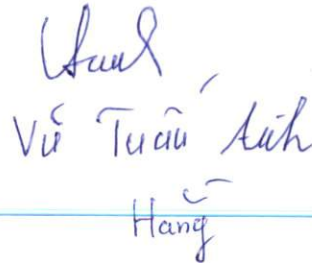 Vũ Tuấn Anh
Hằng